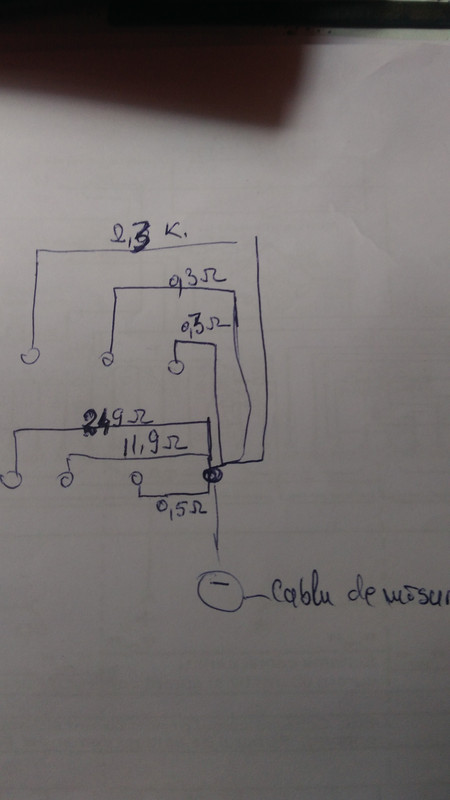 2,3 K.
0,3Ω
0,3Ω
24,9Ω
11,9Ω
0,5Ω
− Cablu de măsur